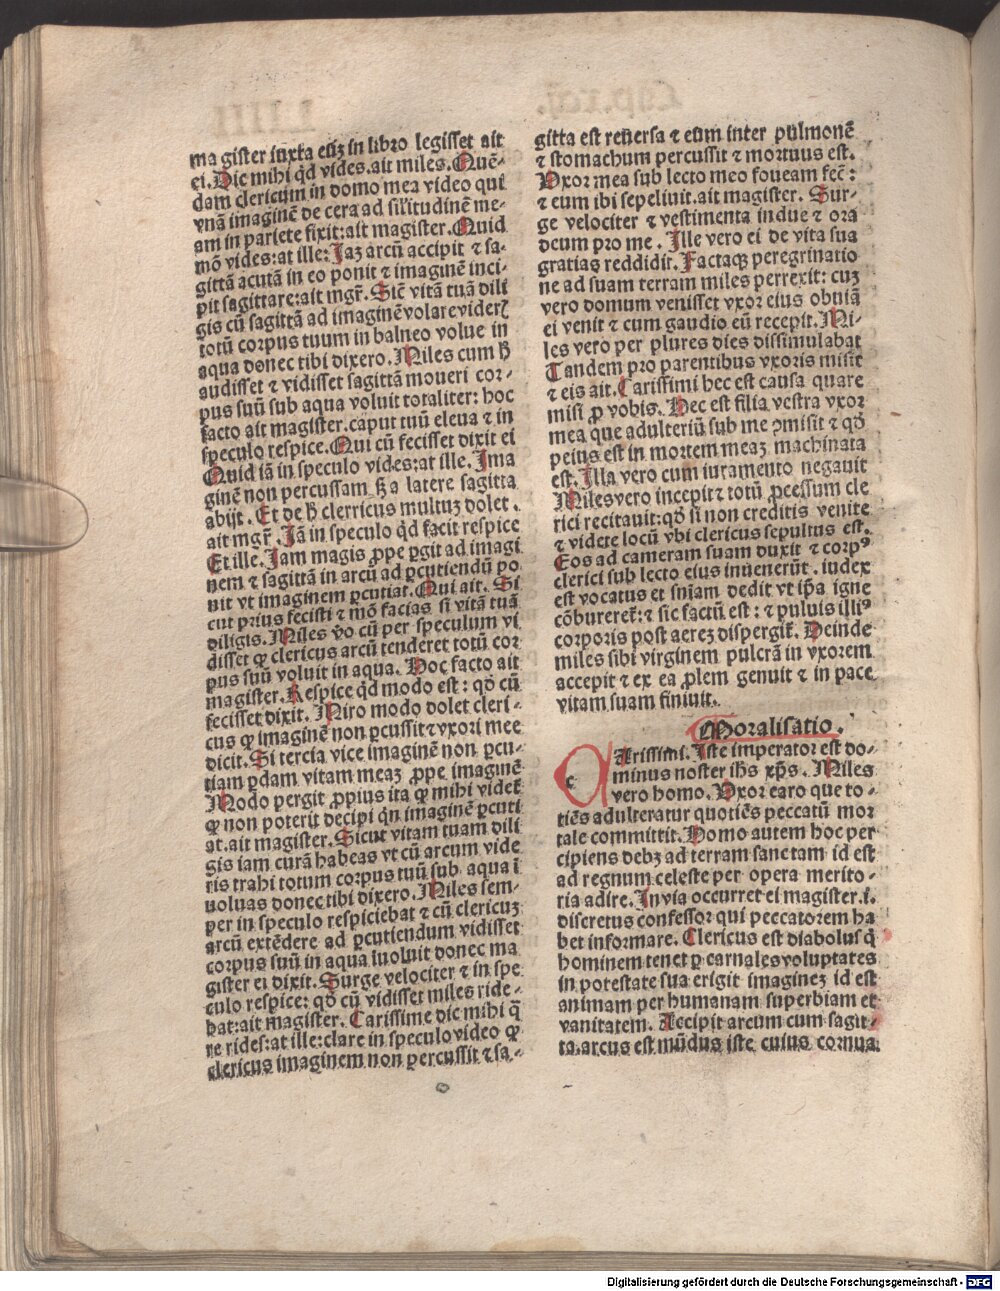 ma gister iuxta eūꝫ in libro legisset ait
ei. Dic mihi qd̄ vides. ait miles. Quē-
dam clericum in domo mea video qui
vnā imaginē de cera ad sil'itudinē me-
am in pariete fixit: ait magister. Quid
mō vides: at ille: Jaꝫ arcū accipit ⁊ sa-
gittā acutā in eo ponit ⁊ imaginē inci-
pit sagittare: ait mgr̄. Sic̄ vitā tuā dili
gis cū sagittā ad imaginē volare viderꝭ
totū corpus tuum in balneo volue in
aqua donec tibi dixero. Miles cum ħ
audisset ⁊ vidisset sagittā moueri cor-
pus suū sub aqua voluit totaliter: hoc
facto ait magister. caput tuū eleua ⁊ in
speculo respice. Qui cū fecisset dixit ei
Quid iā in speculo vides: at ille. Jma
ginē non percussam sꝫ a latere sagitta
abijt. Et de ħ clerricus multuꝫ dolet.
ait mgr̄. Jā in speculo qd̄ facit respice
Et ille. Jam magis ꝓpe ꝑgit ad imagi
nem ⁊ sagittā in arcū ad ꝑcutiendū po
nit vt imaginem ꝑcutiat. Qui ait. Si
cut prius fecisti ⁊ mō facias si vitā tuā
diligis. Miles v̄o cū per speculum vi
disset ꝙ clericus arcū tenderet totū cor
pus suū voluit in aqua. Hoc facto ait
magister. Respice qd̄ modo est: qō cū
fecisset dixit. Miro modo dolet cleri-
cus ꝙ imaginē non ꝑcussit ⁊ vxori mee
dicit. Si tercia vice imaginē non ꝑcu-
tiam ꝑdam vitam meaꝫ ꝓpe imaginē
Modo pergit ꝓpius ita ꝙ mihi videt̄
ꝙ non poterit decipi qn̄ imaginē ꝑcuti
at. ait magister. Sicut vitam tuam dili
gis iam curā habeas vt cū arcum vide
ris trahi totum corpus tuū sub aqua ī
voluas donec tibi dixero. Miles sem-
per in speculo respiciebat ⁊ cū clericuꝫ
arcū extēdere ad ꝑcutiendum vidisset
corpus suū in aqua īuoluit donec ma
gister ei dixit. Surge velociter ⁊ in spe
culo respice: qō cū vidisset miles ride-
bat: ait magister. Carissime dic mihi q̄
re rides: at ille: clare in speculo video ꝙ
clericus imaginem non percussit ⁊ sa-
gitta est reuersa ⁊ eum inter pulmonē
⁊ stomachum percussit ⁊ mortuus est.
Vxor mea sub lecto meo foueam fec̄:
⁊ eum ibi sepeliuit. ait magister. Sur-
ge velociter ⁊ vestimenta indue ⁊ ora
deum pro me. Jlle vero ei de vita sua
gratias reddidit. Factaqꝫ peregrinatio
ne ad suam terram miles perrexit: cuꝫ
vero domum venisset vxor eius obuiā
ei venit ⁊ cum gaudio eū recepit. Mi-
les vero per plures dies dissimulabat
Tandem pro parentibus vxoris misit
⁊ eis ait. Carissimi hec est causa quare
misi ꝓ vobis. Hec est filia vestra vxor
mea que adulteriū sub me ꝯmisit ⁊ qō
peius est in mortem meaꝫ machinata
est. Jlla vero cum iuramento negauit
Miles vero incepit ⁊ totū ꝓcessum cle
rici recitauit: qō si non creditis venite
⁊ videte locū vbi clericus sepultus est.
Eos ad cameram suam duxit ⁊ corpꝰ
clerici sub lecto eius inuenerūt. iudex
est vocatus et snīam dedit vt ip̄a igne
cōbureret̄: ⁊ sic factū est: ⁊ puluis illiꝰ
corporis post aereꝫ dispergit̄. Deinde
miles sibi virginem pulcrā in vxorem
accepit ⁊ ex ea ꝓlem genuit ⁊ in pace
vitam suam finiuit.
Moralisatio.
cArissimi. Jste imperator est do-
minus noster ihs xp̄s. Miles
vero homo. Vxor caro que to-
tiēs adulteratur quotiēs peccatū mor
tale committit. Homo autem hoc per
cipiens debꝫ ad terram sanctam id est
ad regnum celeste per opera merito-
ria adire. Jn via occurret ei magister .i.
discretus confessor qui peccatorem ha
bet informare. Clericus est diabolus q̄
hominem tenet ꝑ carnales voluptates
in potestate sua erigit imagineꝫ id est
animam per humanam superbiam et
vanitatem. Accipit arcum cum sagit-
ta. arcus est mūdus iste cuius cornua
Digitalisierung gefördert durch die Deutsche Forschungsgemeinschaft - DFG